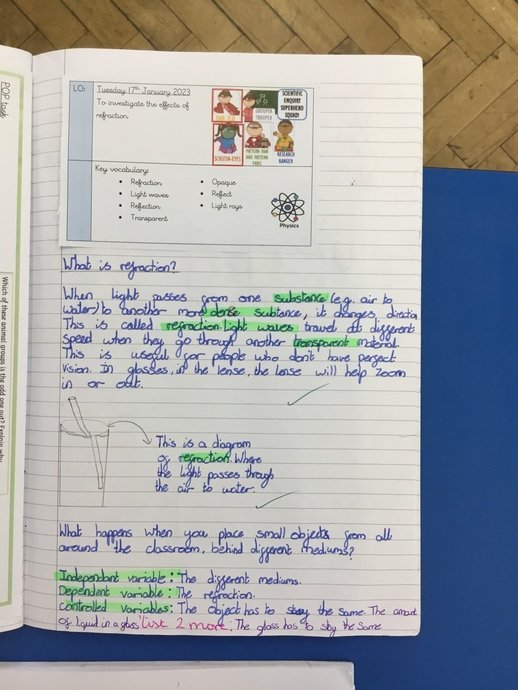 POP task
Which of these animal groups is the odd one out? Explain why
LO:
Tuesday 17th January 2023
To investigate the effects of
refraction
SCIENTIFIC
ENQUIRY
SUPERHERO
SQUAD!
GROUPER
TROOPER
SCRUTIN-EYES
PATTERN MAN
AND PATTERN
PAWS
RESEARCH
RANGER
Key vocabulary:
Refraction
Light waves
Reflection
Transparent
Opaque
Reflect
Light rays
Physics
What is refraction?
When light passes from one substance (e.g. air to
water) to another more dense subtance, it changes, direction
This is called refraction. Light waves travel at different
speed when they go through another transparent material.
This is useful for people who don't have perfect
vision. In glasses, in the lense, the lense will help zoom
in or out.
This is a diagram
of refraction. Where
the light passes through
the air to water.
What happens when you place small objects from all
around the classroom, behind different mediums?
Independant variable: The different mediums.
Dependent variable: The refraction.
Controlled variables: The object has to stay the same. The amount
of liquid in a glass List 2 more. The glass has to stay the same